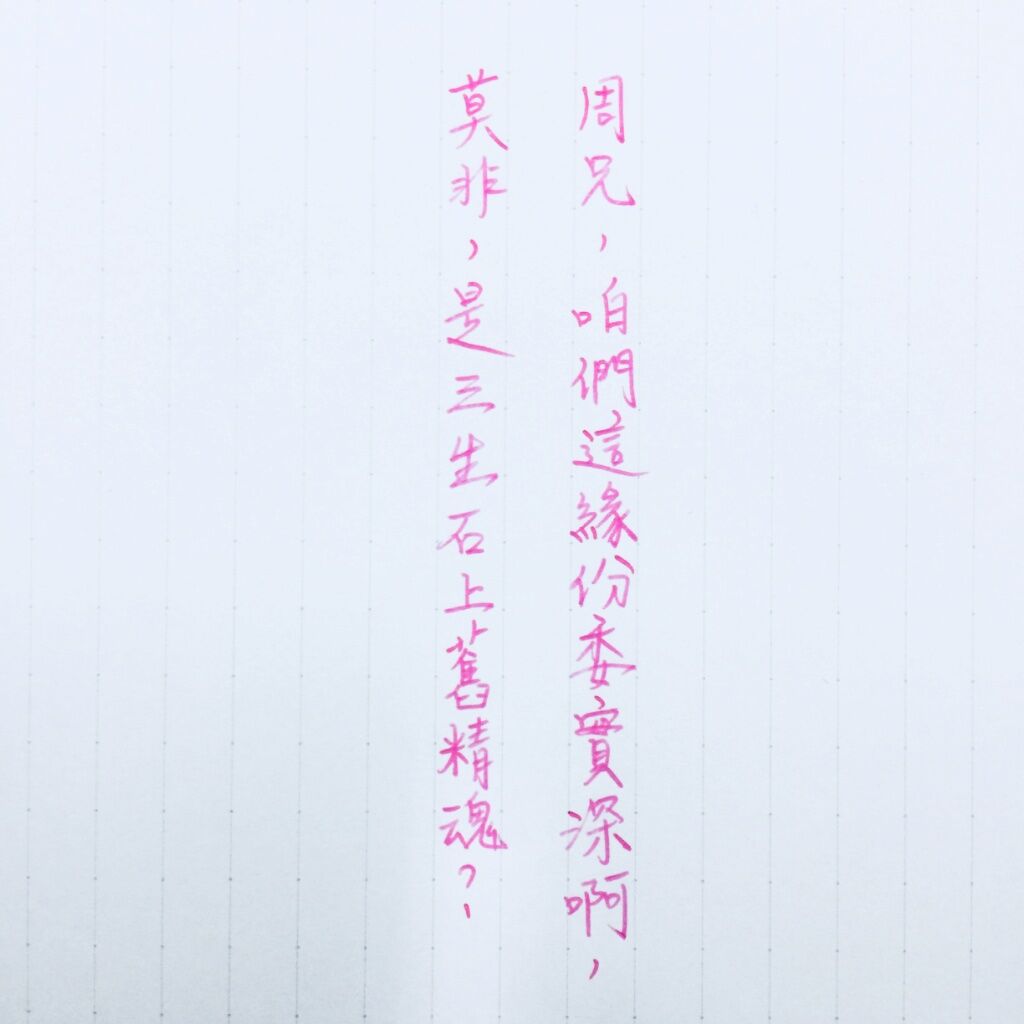 周兄，咱們這緣份委實深啊，
莫非，是三生石上舊精魂？